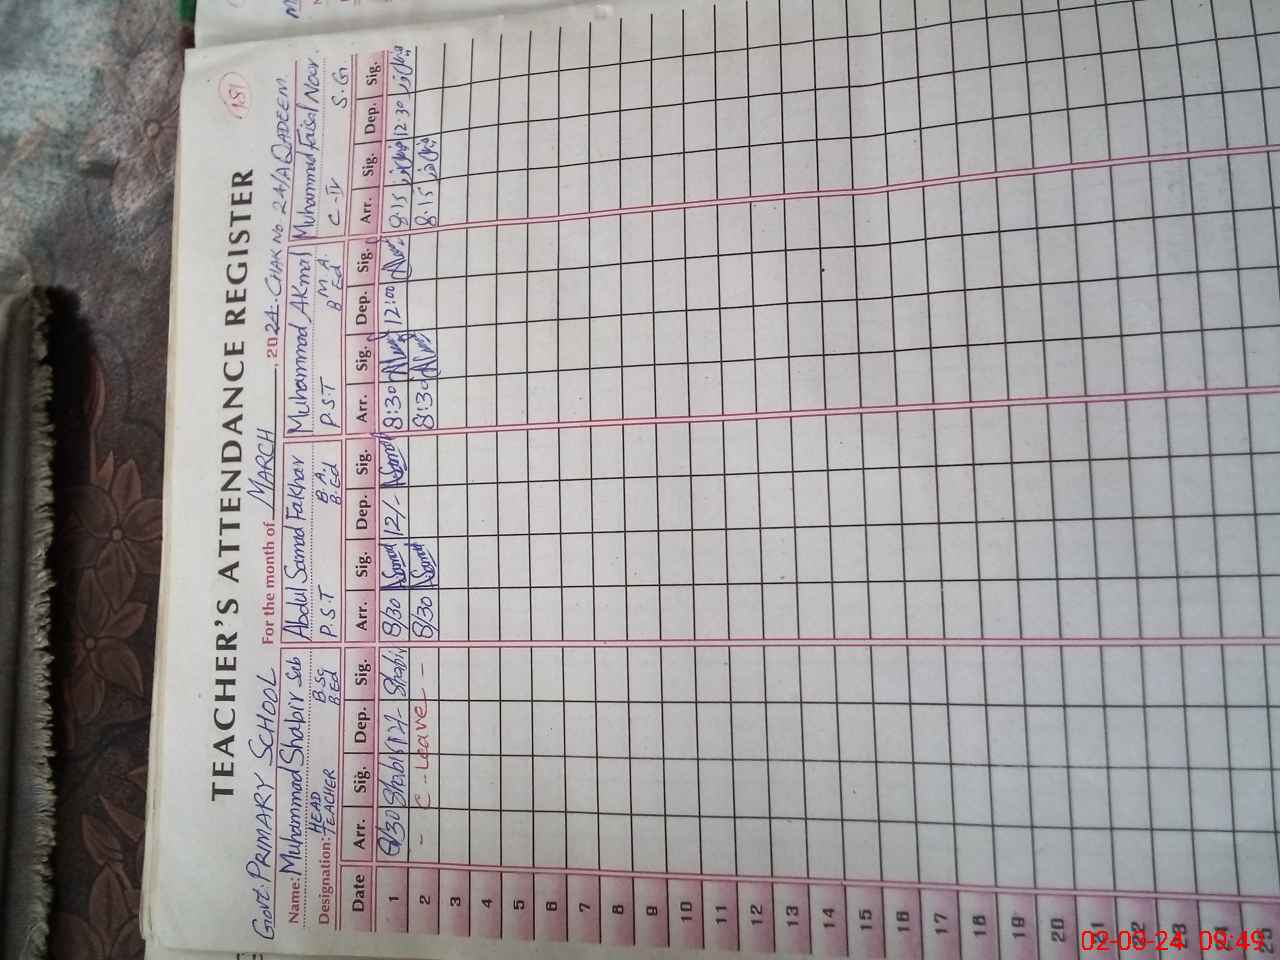 181
TEACHER'S ATTENDANCE REGISTER
Govt: PRIMARY SCHOOL For the month of MARCH, 2024. CHAK No 24/A QADEEM
Name: Muhammad Shabir Sab Abdul Samad Fakhar Muhammad Akmal Muhammad Faisal Noor.
HEAD B.Sc B.A, M.A.
Designation: TEACHER B.Ed P.S.T B.Ed P.S.T B Ed C-IV S.G
Date Arr. Sig. Dep. Sig. Arr. Sig. Dep. Sig. Arr. Sig. Dep. Sig. Arr. Sig. Dep. Sig.
1 8/30 Shabir 12/- Shabir 8/30 ASamad 12/- ASamad 8:30 12:00 8.15 12.30
2 - C - Leave - 8/30 ASamad 8:30 8.15
3
4
5
6
7
8
9
10
11
12
13
14
15
16
17
18
19
20
21
22
23
24
25
02-03-24 09:49